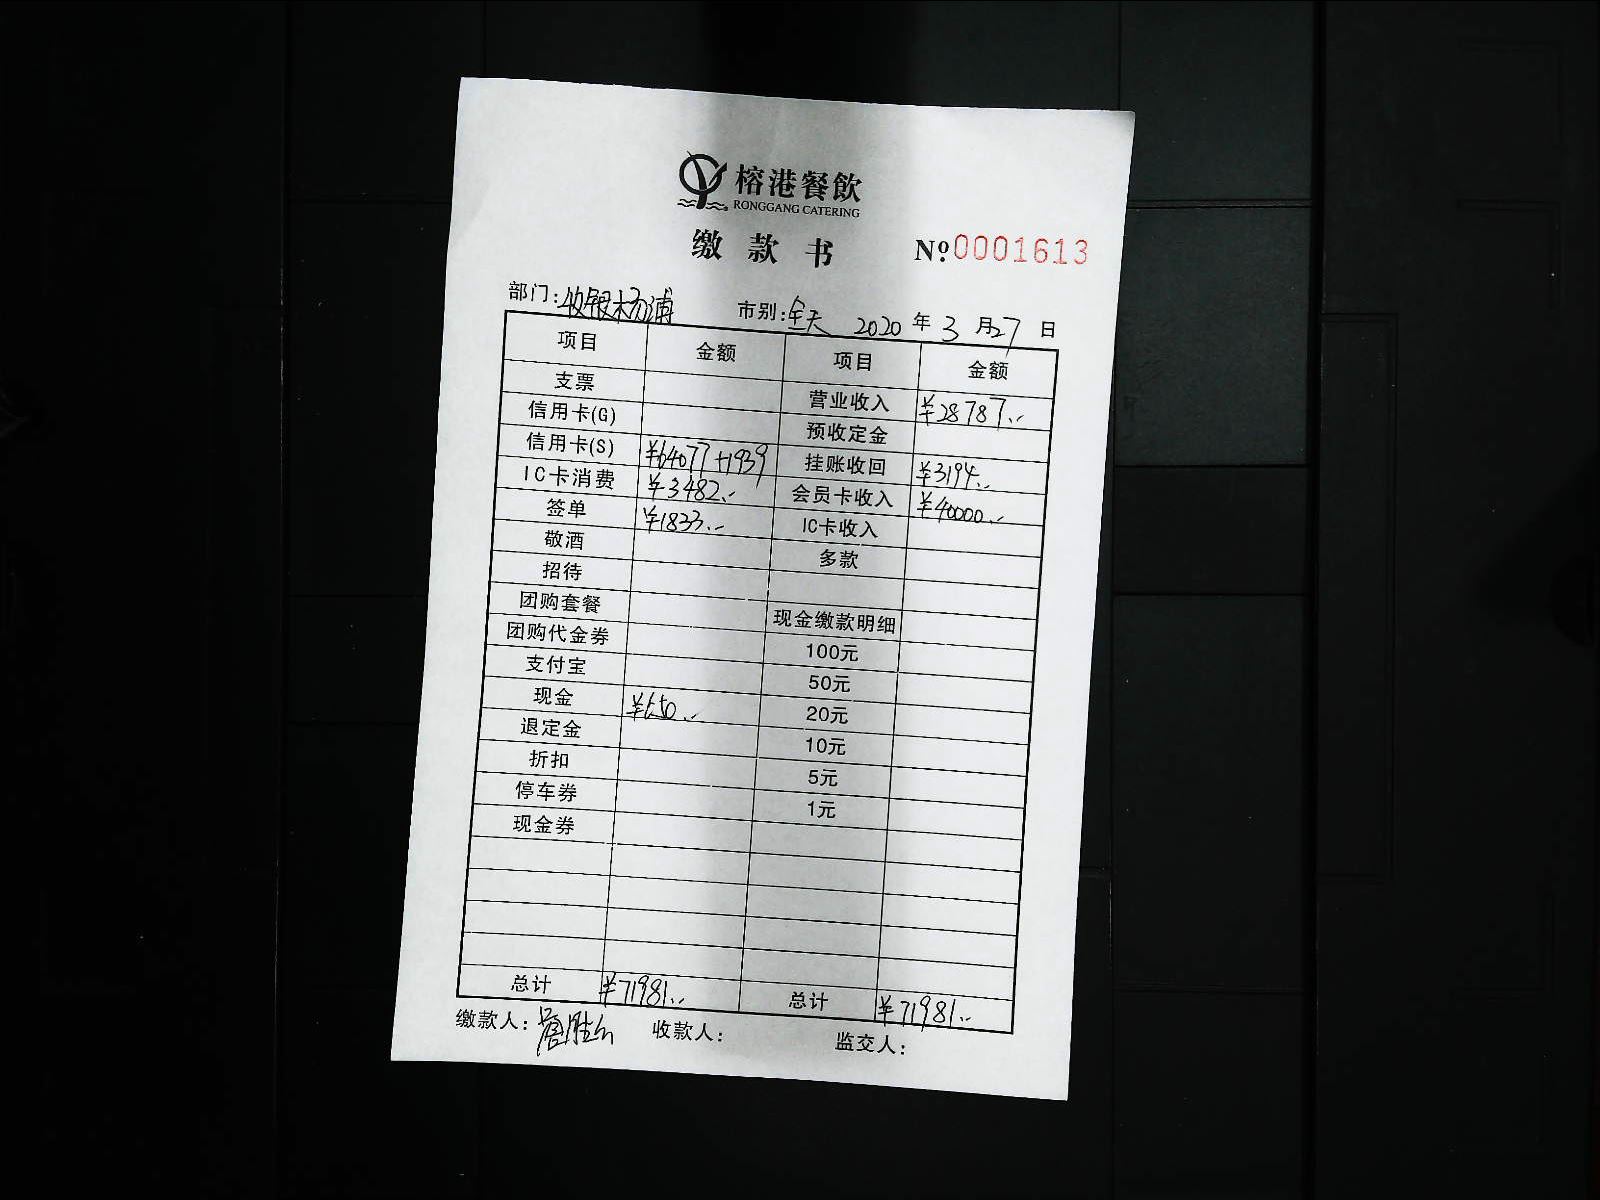 榕港餐飲
RONGGANG CATERING
缴款书 №0001613
部门:收银杨浦 市别:全天 2020年3月27日
项目 金额 项目 金额
支票 营业收入 ¥28787.-
信用卡(G) 预收定金
信用卡(S) ¥64077+1939 挂账收回 ¥3194.-
IC卡消费 ¥3482.- 会员卡收入 ¥40000.-
签单 ¥1833.- IC卡收入
敬酒 多款
招待
团购套餐 现金缴款明细
团购代金券 100元
支付宝 50元
现金 ¥650.- 20元
退定金 10元
折扣 5元
停车券 1元
现金券
总计 ¥71981.- 总计 ¥71981.-
缴款人: 收款人: 监交人: